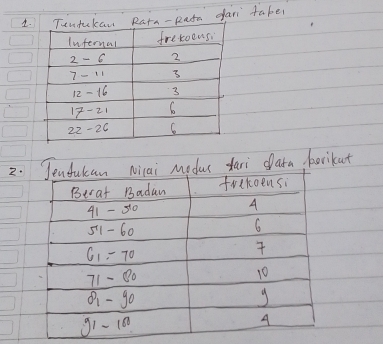 1. Tentukan Rata-Rata dari tabel
Interval frekoensi
2-6 2
7-11 3
12-16 3
17-21 6
22-26 6
2. Tentukan Nilai Modus dari data berikut
Berat Badan frekoensi
41-50 4
51-60 6
61-70 7
71-80 10
81-90 9
91-100 4